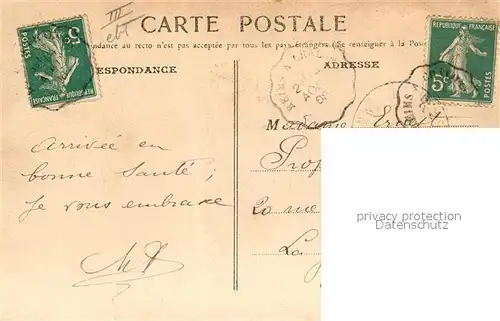 III
ebt
CARTE POSTALE
ondance au recto n'est pas acceptée par tous les pays étrangers (Se renseigner à la Pos
RESPONDANCE
ADRESSE
POSTES 5c
REPUBLIQUE FRANÇAISE
REPUBLIQUE FRANÇAISE
5c POSTES
Madame Ernest
Prop
20 rue
La
Arrivée en
bonne santé ;
je vous embrasse
privacy protection
Datenschutz